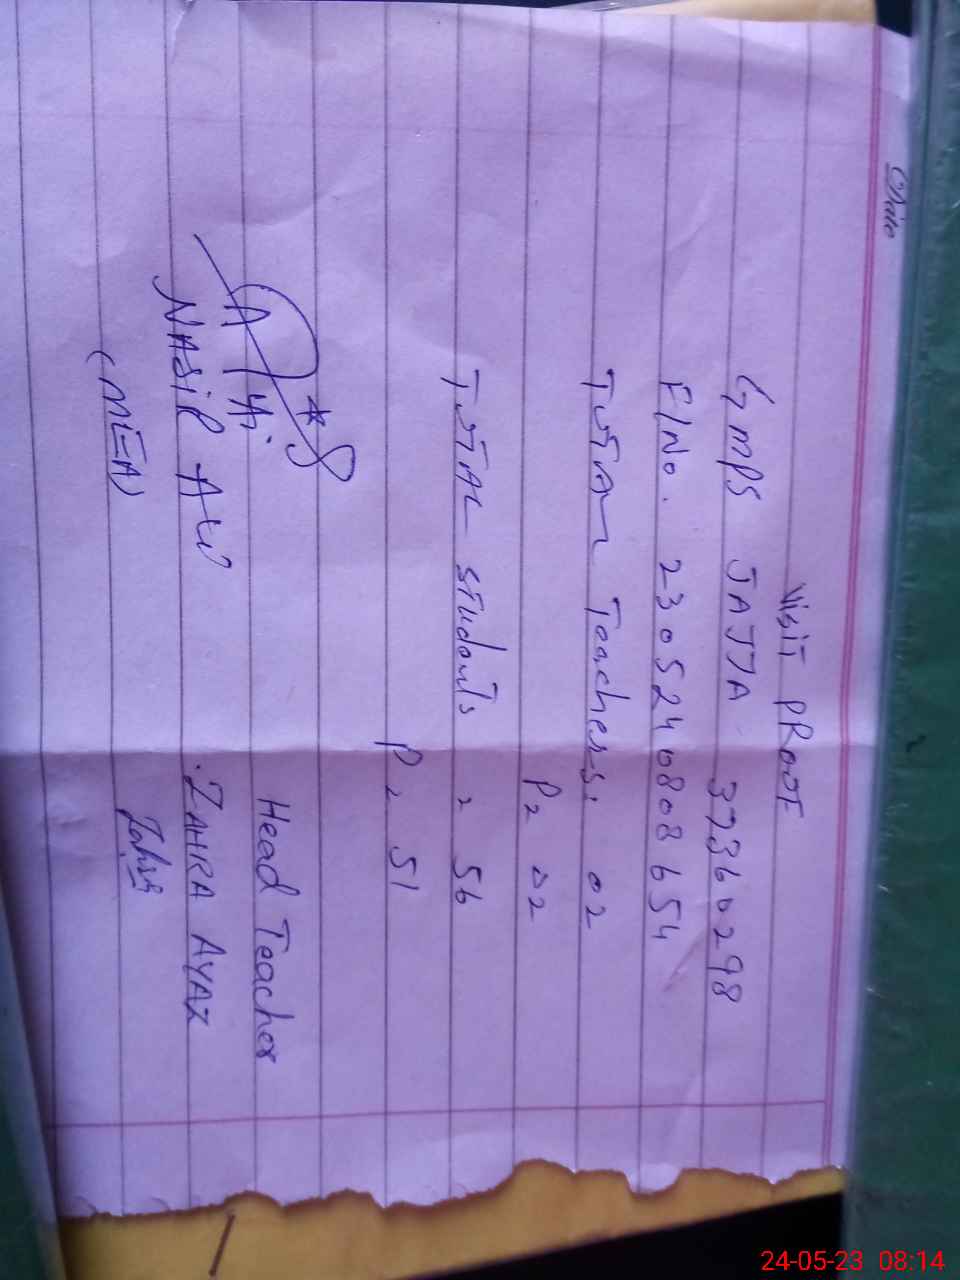 Visit PRooF
GMPS JAJJA 37360298
F/No. 2305240808654
ToTAL Teachers: 02
P = 02
ToTAL students = 56
P = 51
Head Teacher
NASIR ALI .ZAHRA AYAZ
(MEA) Zahra
24-05-23 08:14